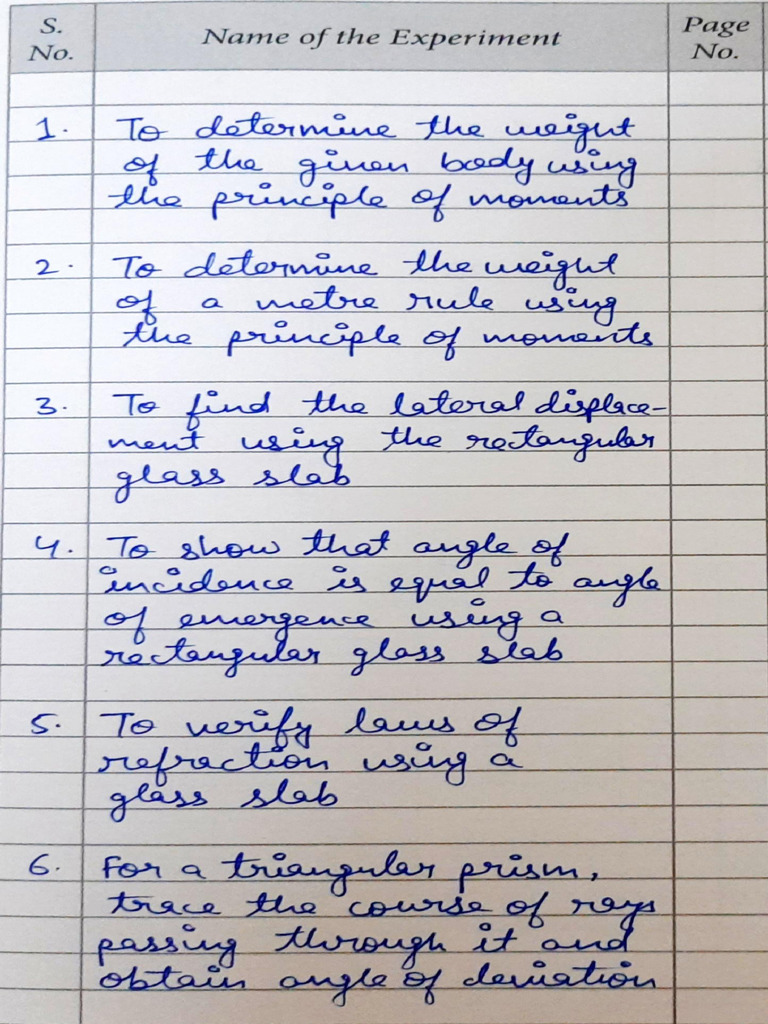 S. No. Name of the Experiment Page No.
1. To determine the weight
of the given body using
the principle of moments
2. To determine the weight
of a metre rule using
the principle of moments
3. To find the lateral displace-
ment using the rectangular
glass slab
4. To show that angle of
incidence is equal to angle
of emergence using a
rectangular glass slab
5. To verify laws of
refraction using a
glass slab
6. For a triangular prism,
trace the course of rays
passing through it and
obtain angle of deviation